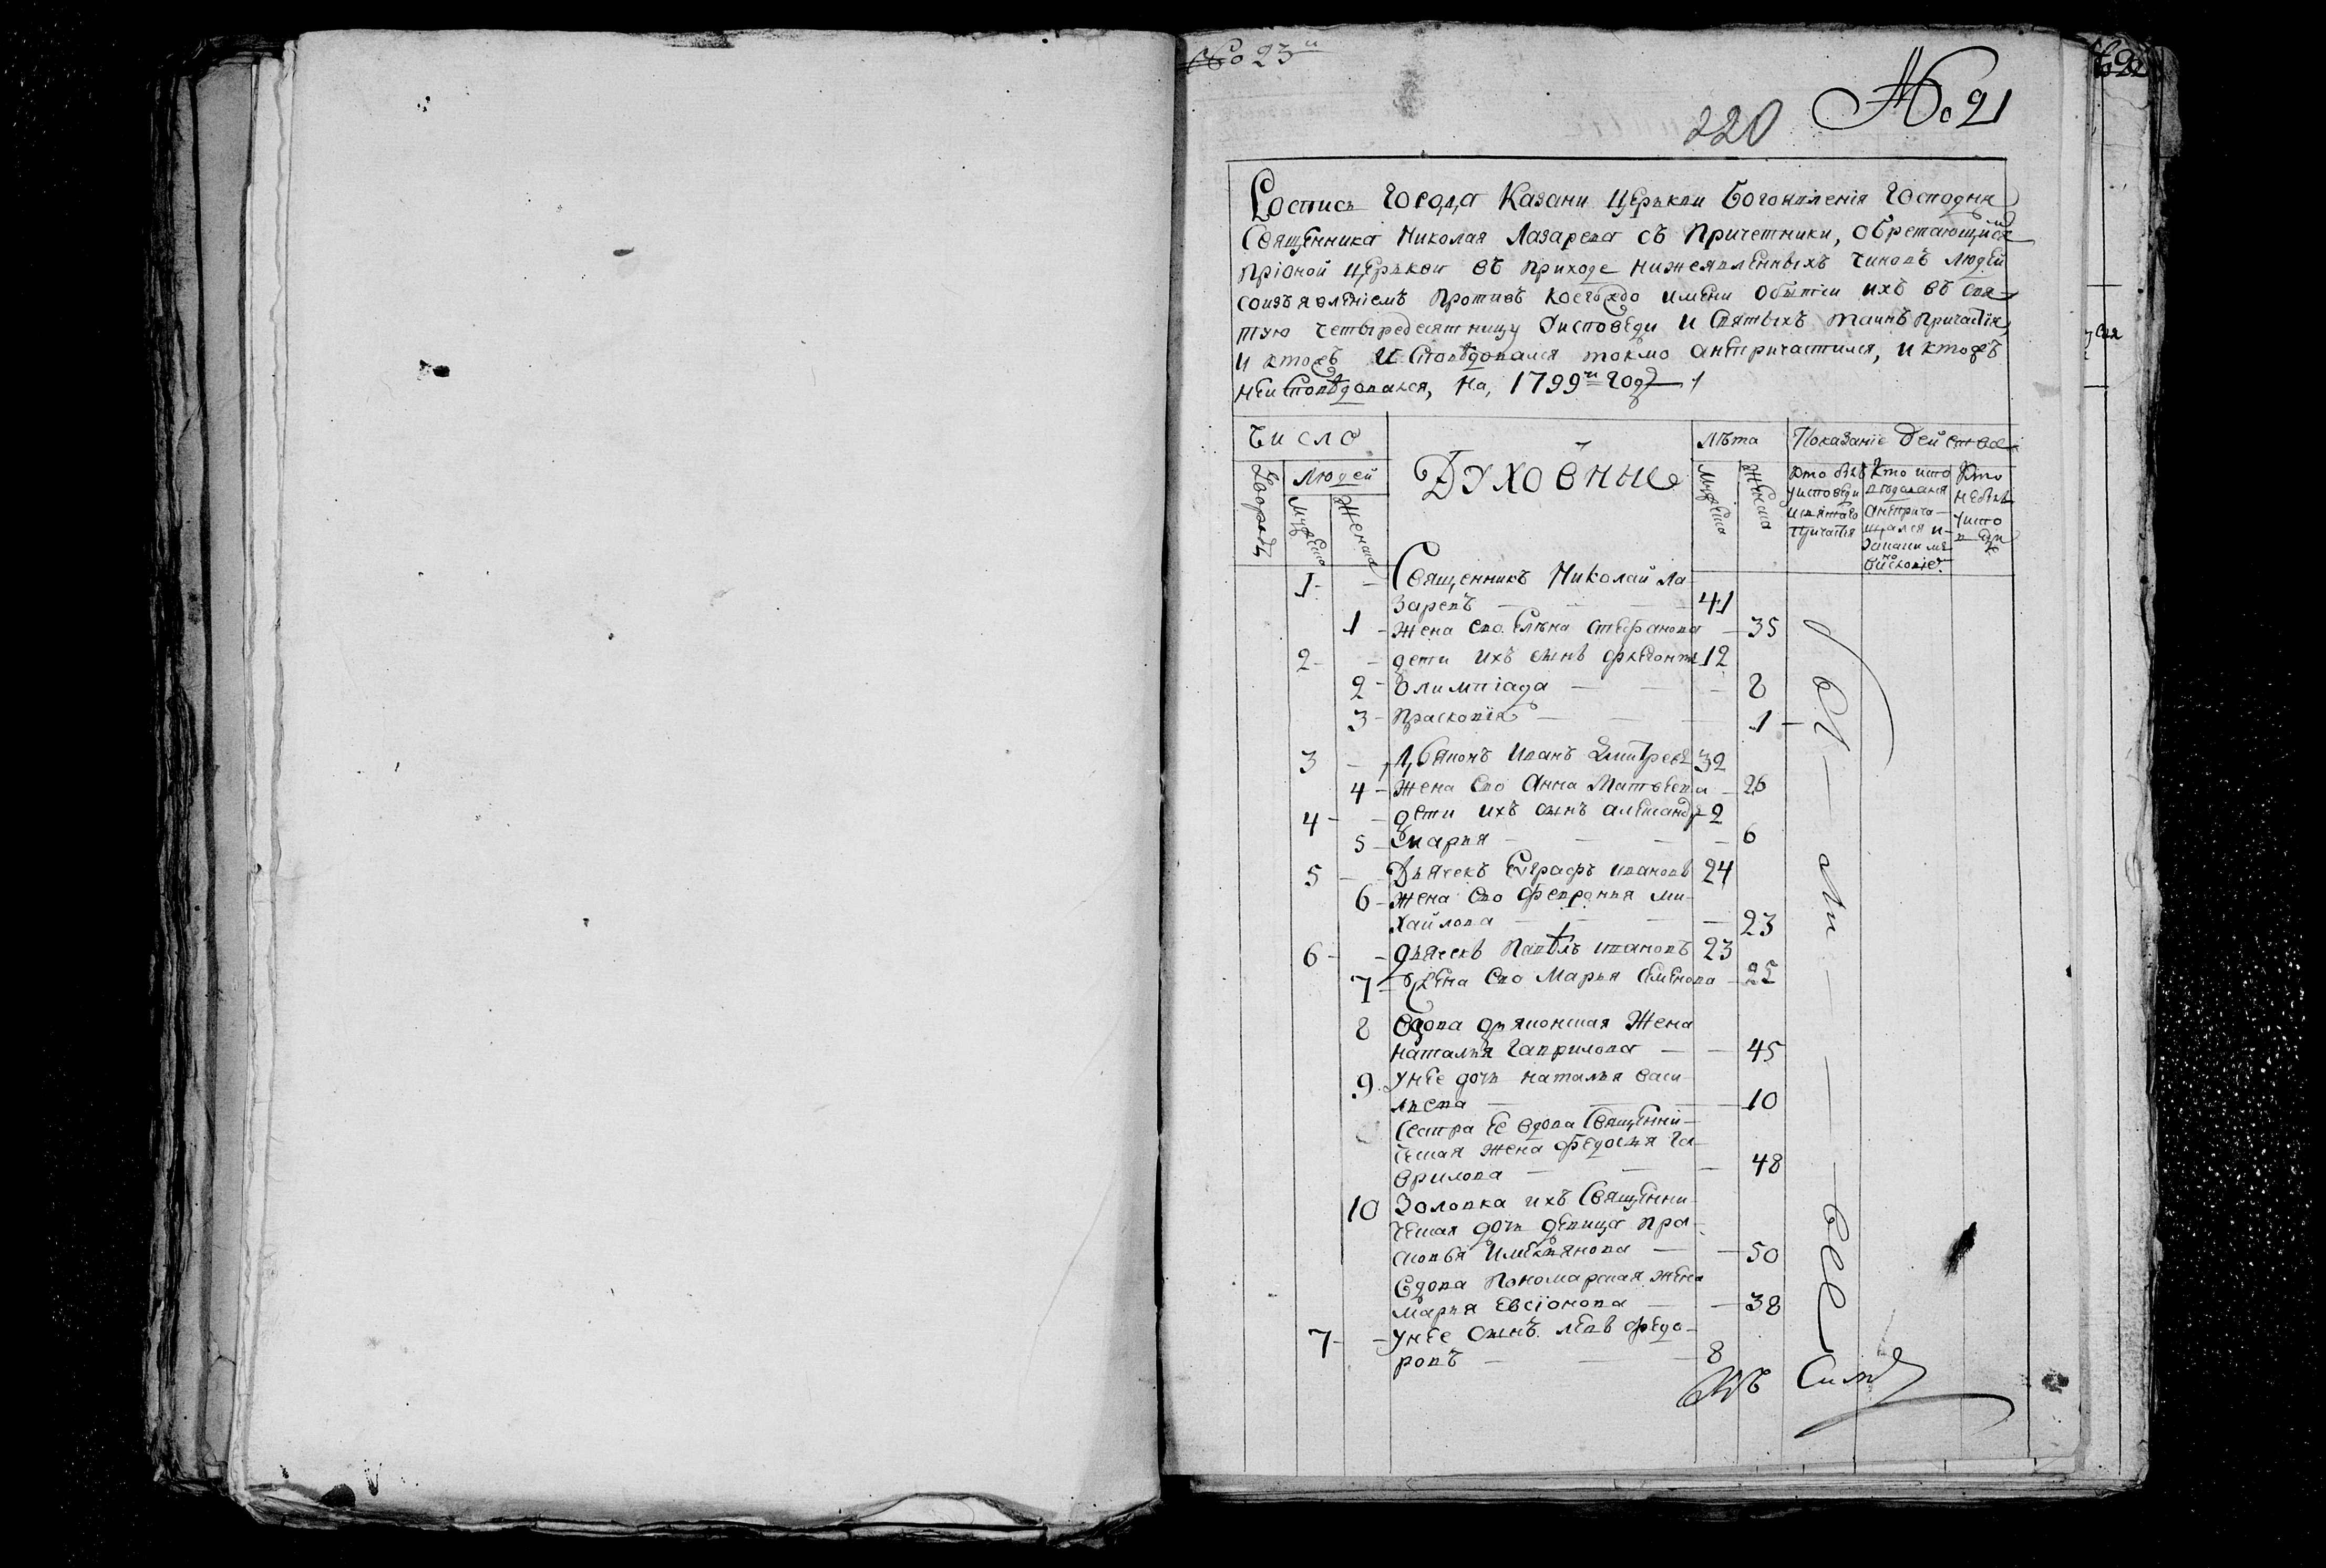 № 23й
№ 21
220
Роспись Города Казани Церькви Богоявленія Господня
Священника Николая Лазарева съ Причетники, обретающимся
пріоной церькви въ приходе нижеявленныхъ чиновъ людей
соизъявленіемъ противъ коегождо имени обытіи ихъ въ свя-
тую четыредесятницу уисповеди и святыхъ таинъ причастія
и ктожъ исповѣдовался токмо анепричастился, и ктожъ
неисповѣдовался, на, 1799й годъ
Число
Лѣта
Показаніе действа
Дворовъ
Людей
Мужеска
Женска
Духовные
Мужеска
Женска
Кто былъ уисповеди исвятаго причастія
Кто испо вѣдовался анеприча- щался и- закаким винословіе.
Кто небылъ уиспо веди
1 - - Священникъ Николай Ла
заревъ - 41
1 - Жена ево Елѣна Стефанова - 35
2 - - дети ихъ сынъ флегонтъ 12
2 - Олимпіада - 8
3 - Прасковія - 1
3 - Дьяконъ Иванъ Дмитревъ 32
4 - Жена ево Анна Матвеева - 26
4 - - дети ихъ сынъ александръ 2
5 - Марья - 6
5 - Дьячекъ Евграфъ ивановъ 24
6 - жена ево Февронья ми-
хайлова - 23
6 - - дьячекъ Павѣлъ ивановъ 23
7 - Жена ево Марья Семенова - 25
8 Вдова дьяконская Жена
наталья Гаврилова - 45
9. унее дочь наталья васи-
льева - 10
Сестра ее вдова Священни-
ческая жена федосья Га-
врилова - 48
10 Золовка ихъ Священни-
ческая дочь девица пра-
сковья Имельянова - 50
Вдова Пономарская жена
Марья Евсіонова - 38
7 - - унее сынъ левъ федо-
ровъ - 8
были все